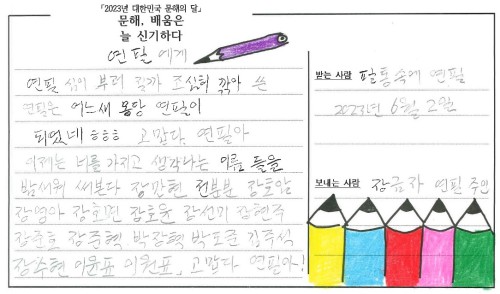 「2023년 대한민국 문해의 달」
문해, 배움은
늘 신기하다
연필에게
연필 심이 부러 질까 조심히 깎아 쓴
연필은 어느새 몽당 연필이
되었네 ㅎㅎㅎ 고맙다. 연필아
이제는 너를 가지고 생각나는 이름 들을
밤새워 써본다 장만현 전분분
장영아 장희진 장호윤 장선미 장현주
장준호 장주혁 박장혁 박도준
장주현 이윤표 이원표, 고맙다 연필아!
받는 사람 필통속에 연필
2023년 6월 2일
보내는 사람 장금자 연필 주인